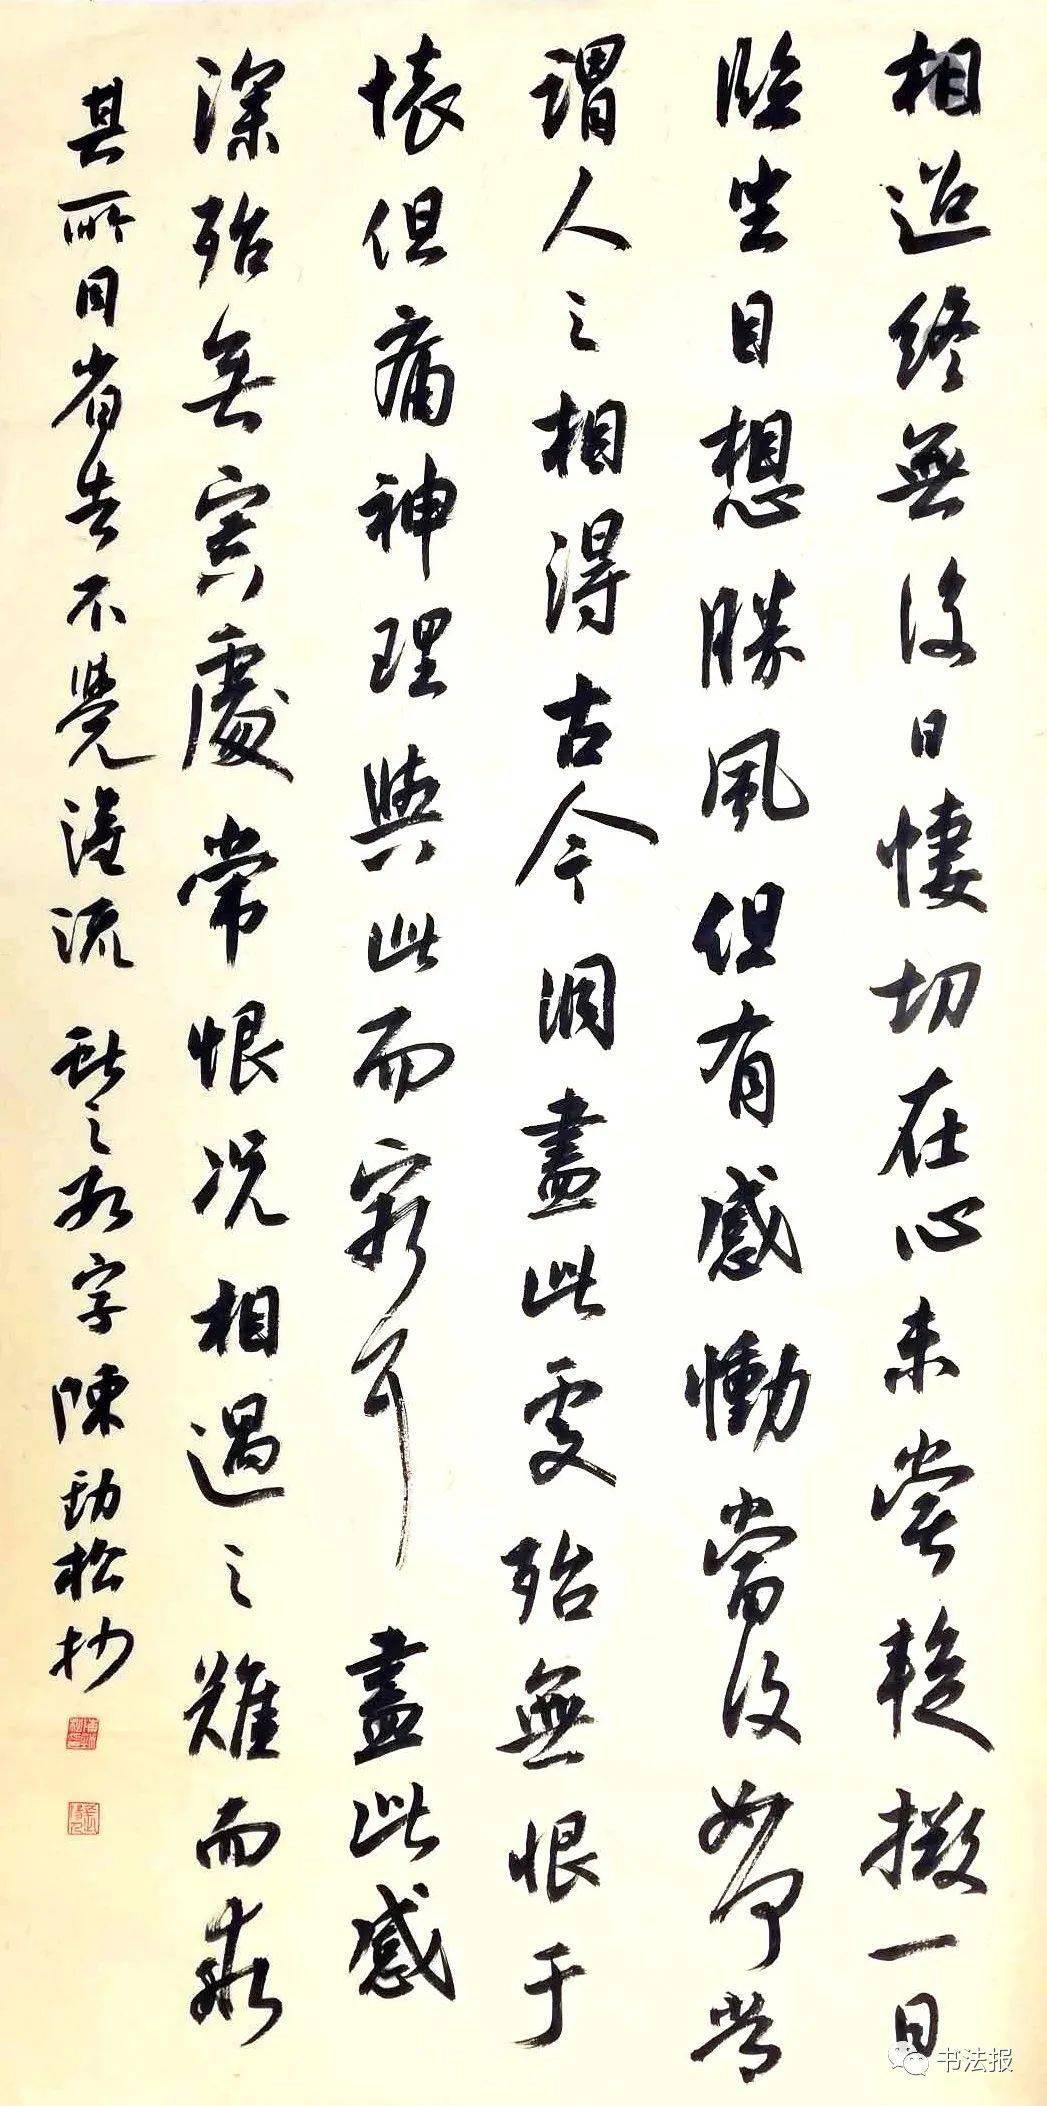 相迎終無復日悽切在心未嘗輟撥一日
臨坐目想勝風但有感慟當復如何常
謂人之相得古今洞盡此處殆無恨于
懷但痛神理與此而窮耳 盡此感
深殆無寘處常恨況相遇之難而乖
其所同省告不覺涕流 獻之 字陳勁松抄
书法报